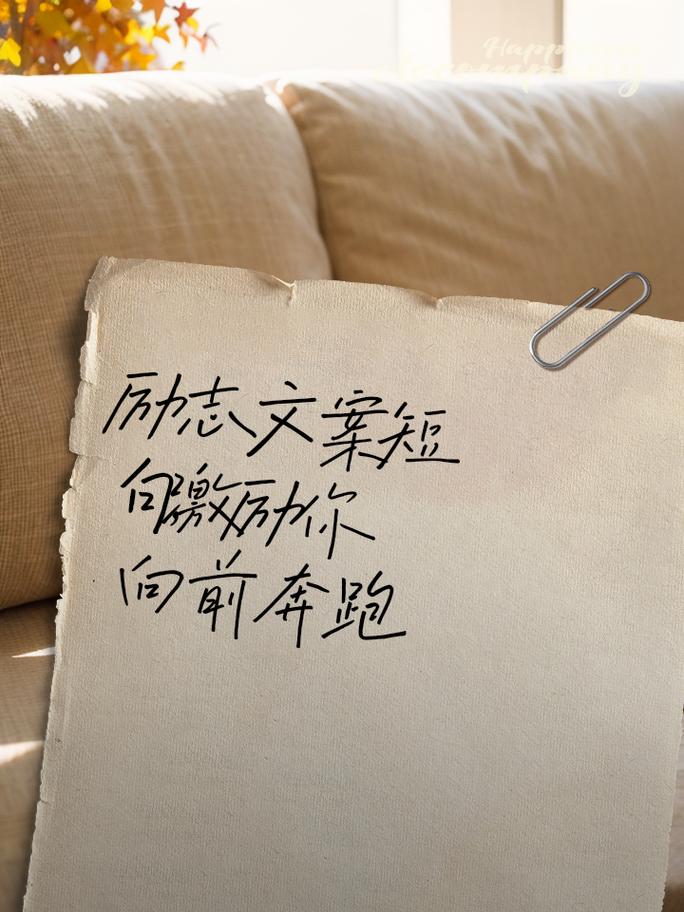 Happ
励志文案短
句激励你
向前奔跑